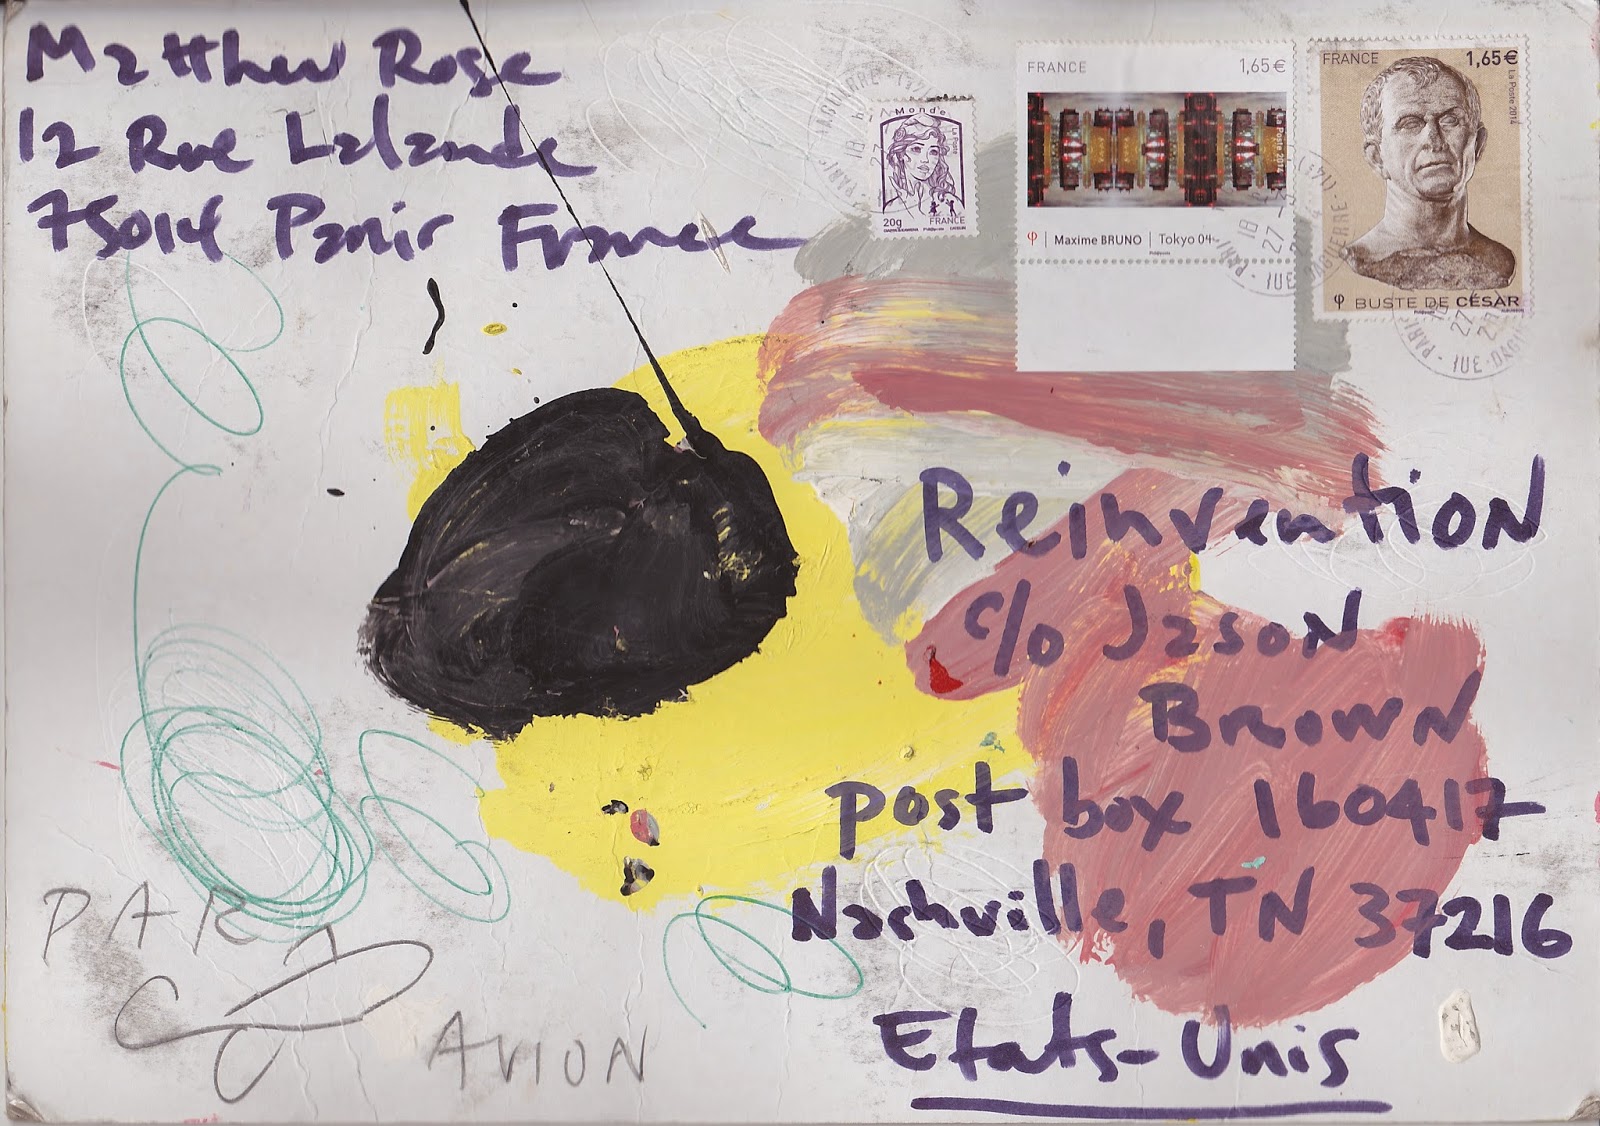 Matthew Rose
12 Rue Lalande
75014 Paris France
Monde
La Poste
20g
FRANCE
FRANCE 1,65€
La Poste 2014
φ | Maxime BRUNO | Tokyo 04
Philaposte
FRANCE 1,65€
La Poste 2014
φ BUSTE DE CÉSAR
Philaposte
Reinvention
c/o Jason
Brown
post box 160417
Nashville, TN 37216
Etats-Unis
PAR
AVION